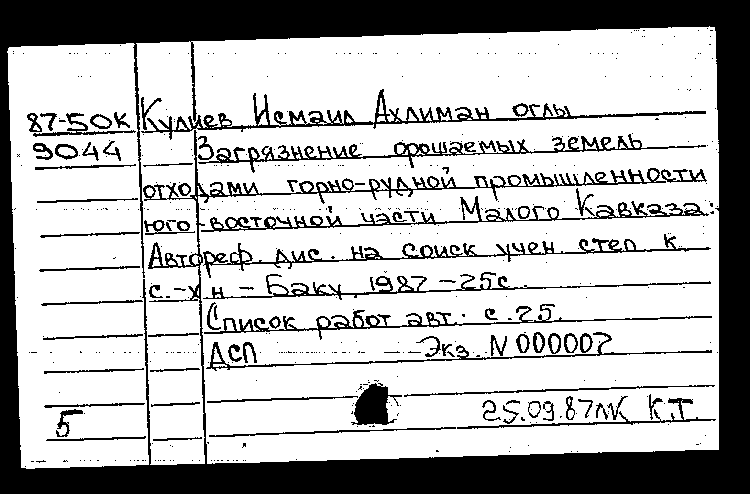 87-50К Кулиев, Исмаил Ахлиман оглы
9044 Загрязнение орошаемых земель
отходами горно-рудной промышленности
юго-восточной части Малого Кавказа:
Автореф. дис. на соиск учен степ к.
с.-х н - Баку, 1987 - 25с.
Список работ авт.: с. 25.
ДСП Экз. N 000007
5 25.09.87 ЛК К.Т.